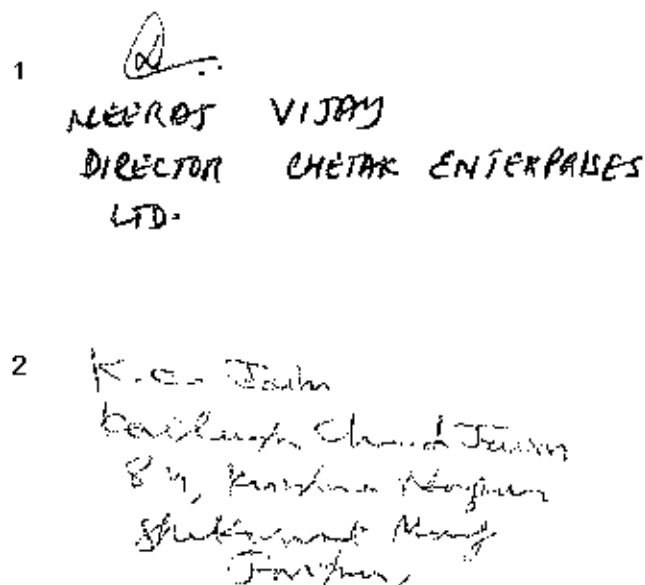 1
NEERAJ VIJAY
DIRECTOR CHETAK ENTERPRISES
LTD.
2
K. C. Jain
Kailash Chand Jain
84, Krishna Nagar
Jaipur,